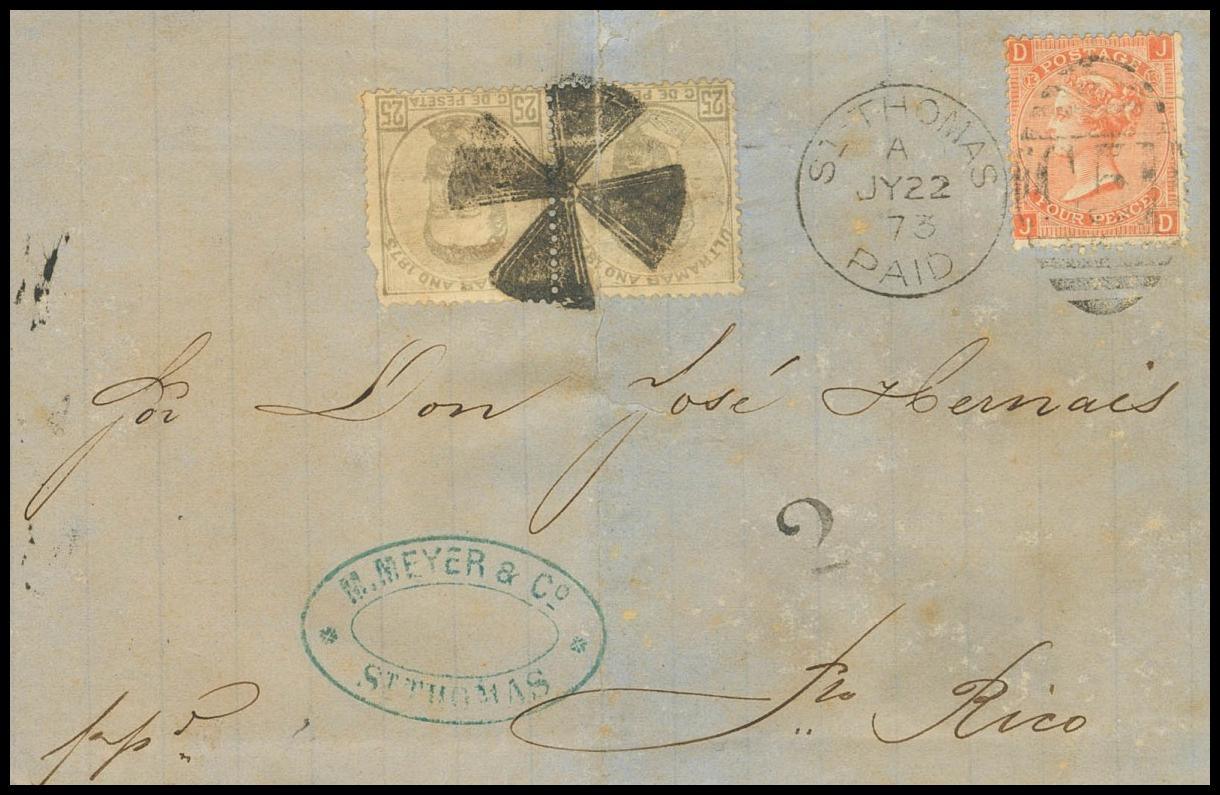 25 C DE PESETA 25
25 C DE PESETA 25
ULTRAMAR AÑO 1873
ST THOMAS
A
JY 22
73
PAID
D J
POSTAGE
FOUR PENCE
J D
Por Don José Hernais
2
M. MEYER & Cº
ST THOMAS
Pto Rico